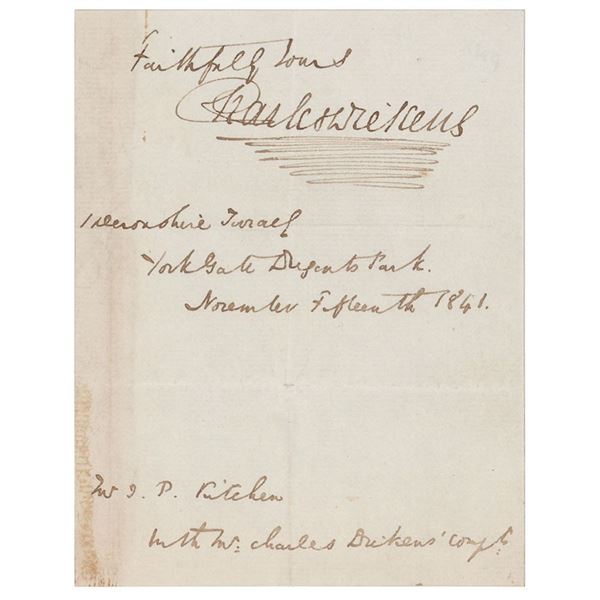 Faithfully Yours
Charles Dickens
1 Devonshire Terrace
York Gate Regents Park.
November Fifteenth 1841.
Mr J. P. Kitchen
With Mr. Charles Dickens' compts